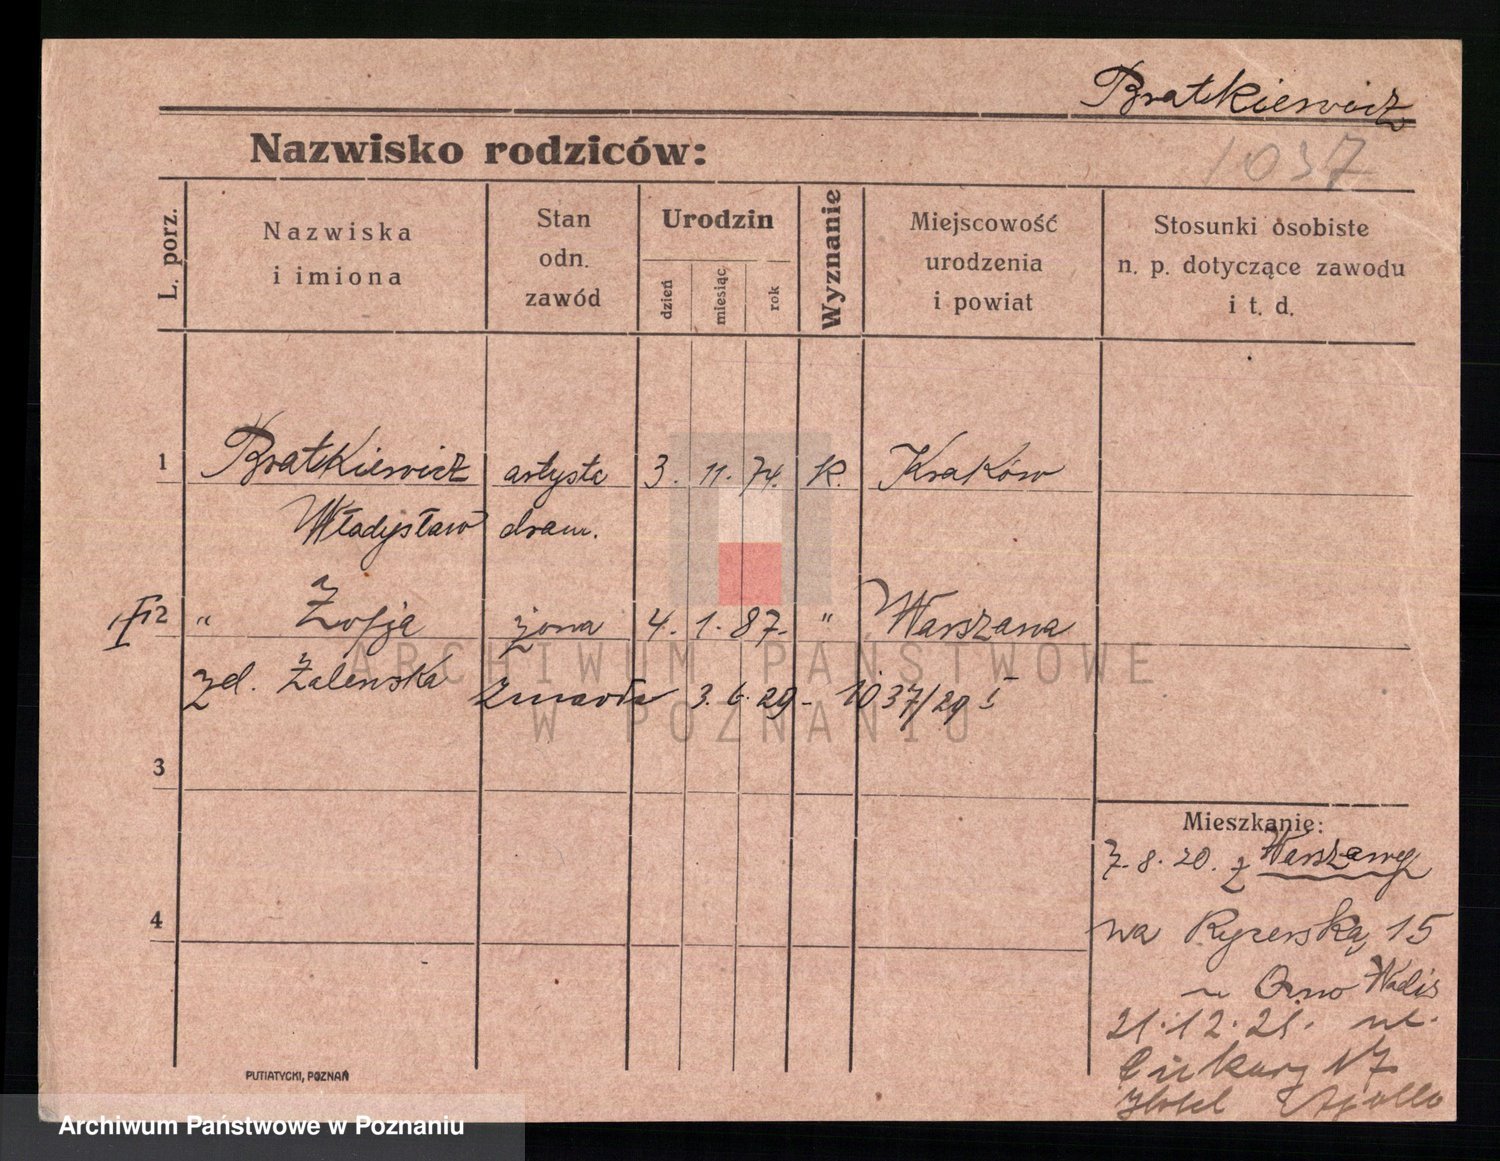 Bratkiewicz
1037
Nazwisko rodziców:
L. porz.
Nazwiska
i imiona
Stan
odn.
zawód
Urodzin
dzień
miesiąc
rok
Wyznanie
Miejscowość
urodzenia
i powiat
Stosunki osobiste
n. p. dotyczące zawodu
i t. d.
1 Bratkiewicz artysta 3. 11. 74. K. Kraków
Władysław dram.
2 " Zofja żona 4. 1. 87. " Warszawa
zd. Zalewska zmarła 3. 6. 29 - 1037/29 I
3
4
Mieszkanie:
7. 8. 20. z Warszawy
na Rycerską 15
21.12.21. ul.
17
Hotel Apollo
PUTIATYCKI, POZNAŃ
ARCHIWUM PAŃSTWOWE
W POZNANIU
Archiwum Państwowe w Poznaniu